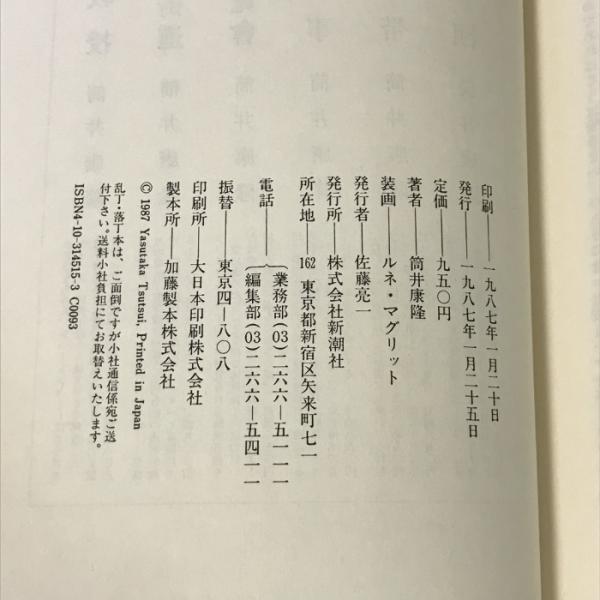 印刷――一九八七年一月二十日
発行――一九八七年一月二十五日
定価――九五〇円
著者――筒井康隆
装画――ルネ・マグリット
発行者――佐藤亮一
発行所――株式会社新潮社
所在地――162 東京都新宿区矢来町七一
電話――業務部(03)二六六―五一一一
編集部(03)二六六―五四一一
振替――東京四―八〇八
印刷所――大日本印刷株式会社
製本所――加藤製本株式会社
© 1987 Yasutaka Tsutsui, Printed in Japan
乱丁・落丁本は、ご面倒ですが小社通信係宛ご送
付下さい。送料小社負担にてお取替えいたします。
ISBN4-10-314515-3 C0093